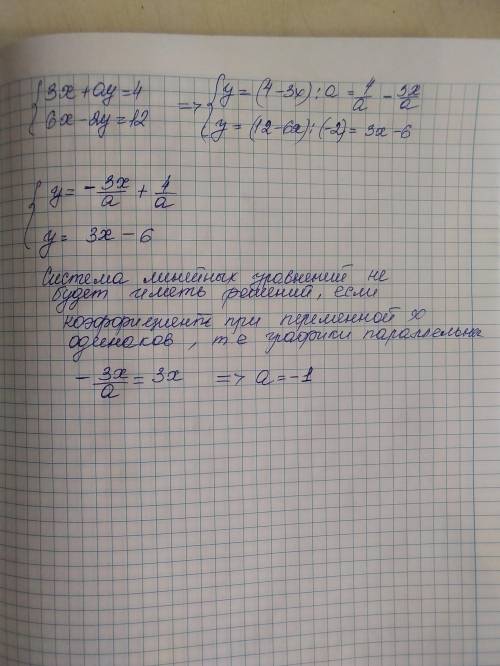 { 3x + ay = 4    => { y = (4-3x) : a = 4/a - 3x/a
{ 6x - 2y = 12      { y = (12-6x) : (-2) = 3x - 6
{ y = - 3x/a + 4/a
{ y = 3x - 6
Система линейных уравнений не
будет иметь решений, если
коэффициенты при переменной x
одинаков, т е графики параллельны
- 3x/a = 3x    => a = -1